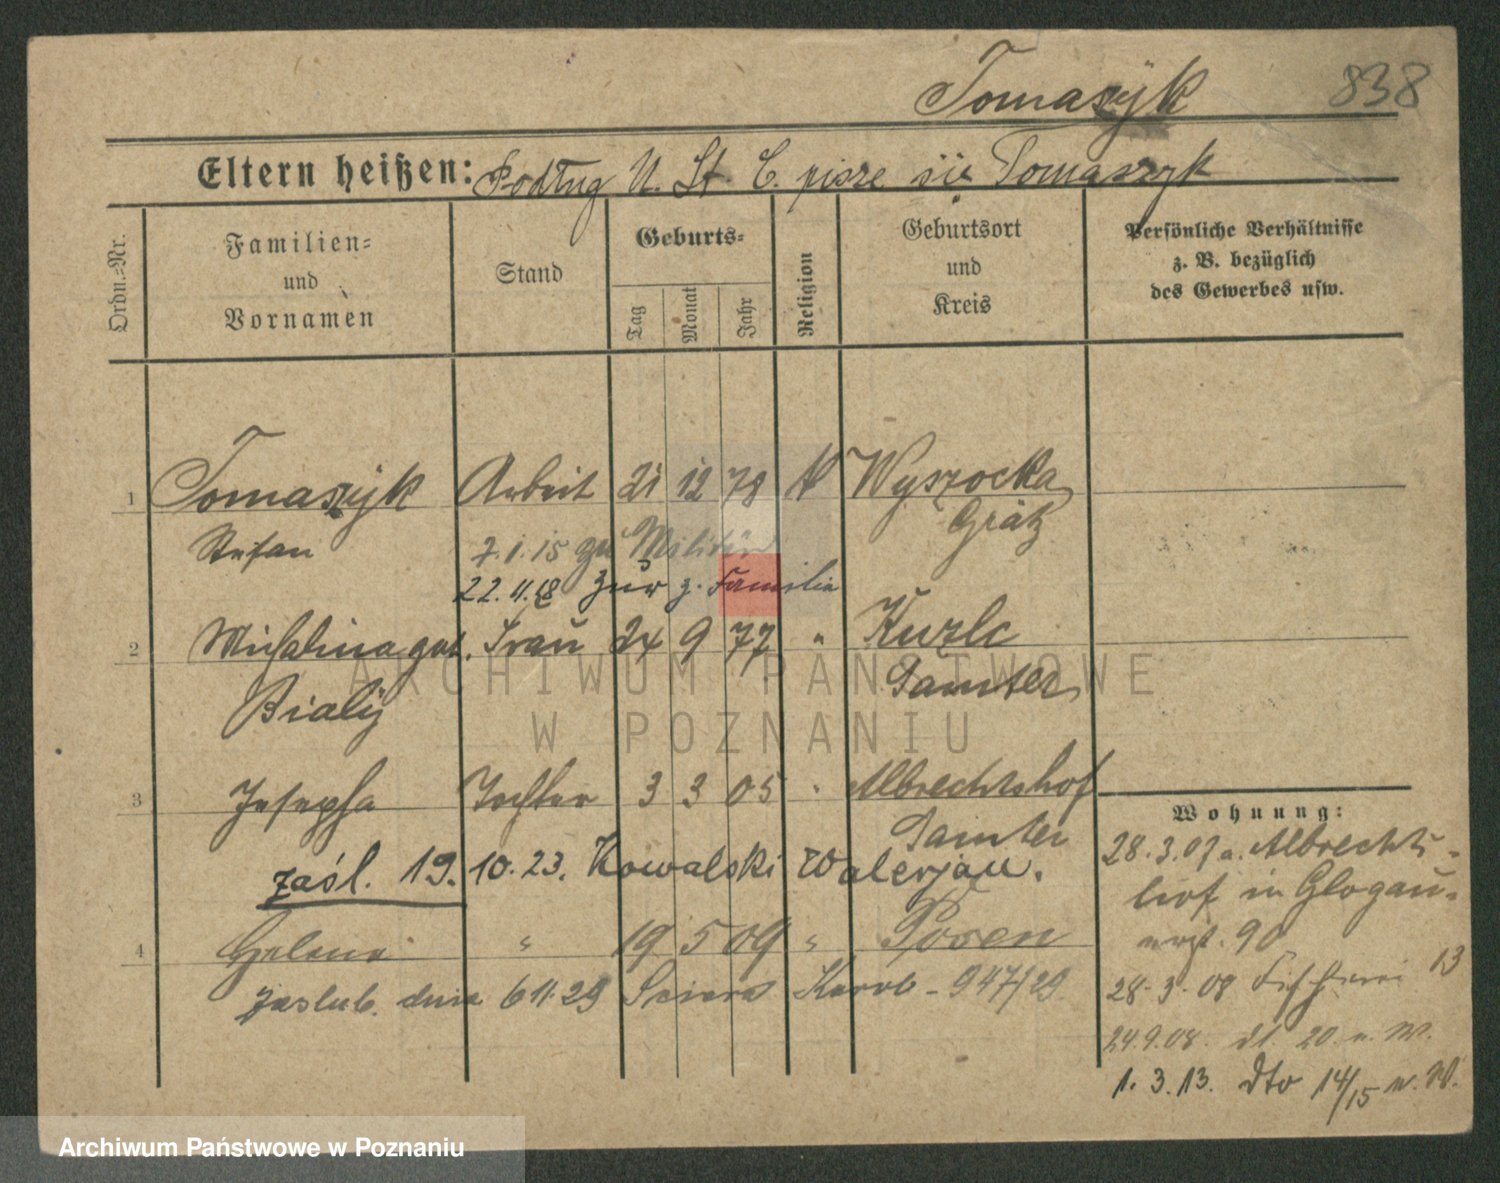 Tomaszyk 838
Eltern heißen: Podług U. St. C. pisze się Tomaszyk
Ordn.=Nr.
Familien= und Vornamen
Stand
Geburts=
Tag Monat Jahr
Religion
Geburtsort und Kreis
Persönliche Verhältnisse z. B. bezüglich des Gewerbes usw.
1 Tomaszyk Arbeit 21 12 78 K Wyszocka
Stefan Grätz
7.1.15 zu Militär
22.11.18 zur z. Familie
2 Michalina geb. Frau 24 9 77 " Kurle
Bialy Samter
3 Josepha Tochter 3 3 05 " Albrechtshof
Samter
zaśl. 19.10.23. Kowalski Walerjan.
4 Helena " 19 5 09 " Posen
zaślub. dnia 6 11.29 Karol - 947/29
Wohnung:
28.3.07 a. Albrechts-
hof in Glogau-
90
28.3.08 Fischerei 13
24.9.08. dt. 20 n. W.
1.3.13. dto 14/15 n. W.
ARCHIWUM PAŃSTWOWE
W POZNANIU
Archiwum Państwowe w Poznaniu